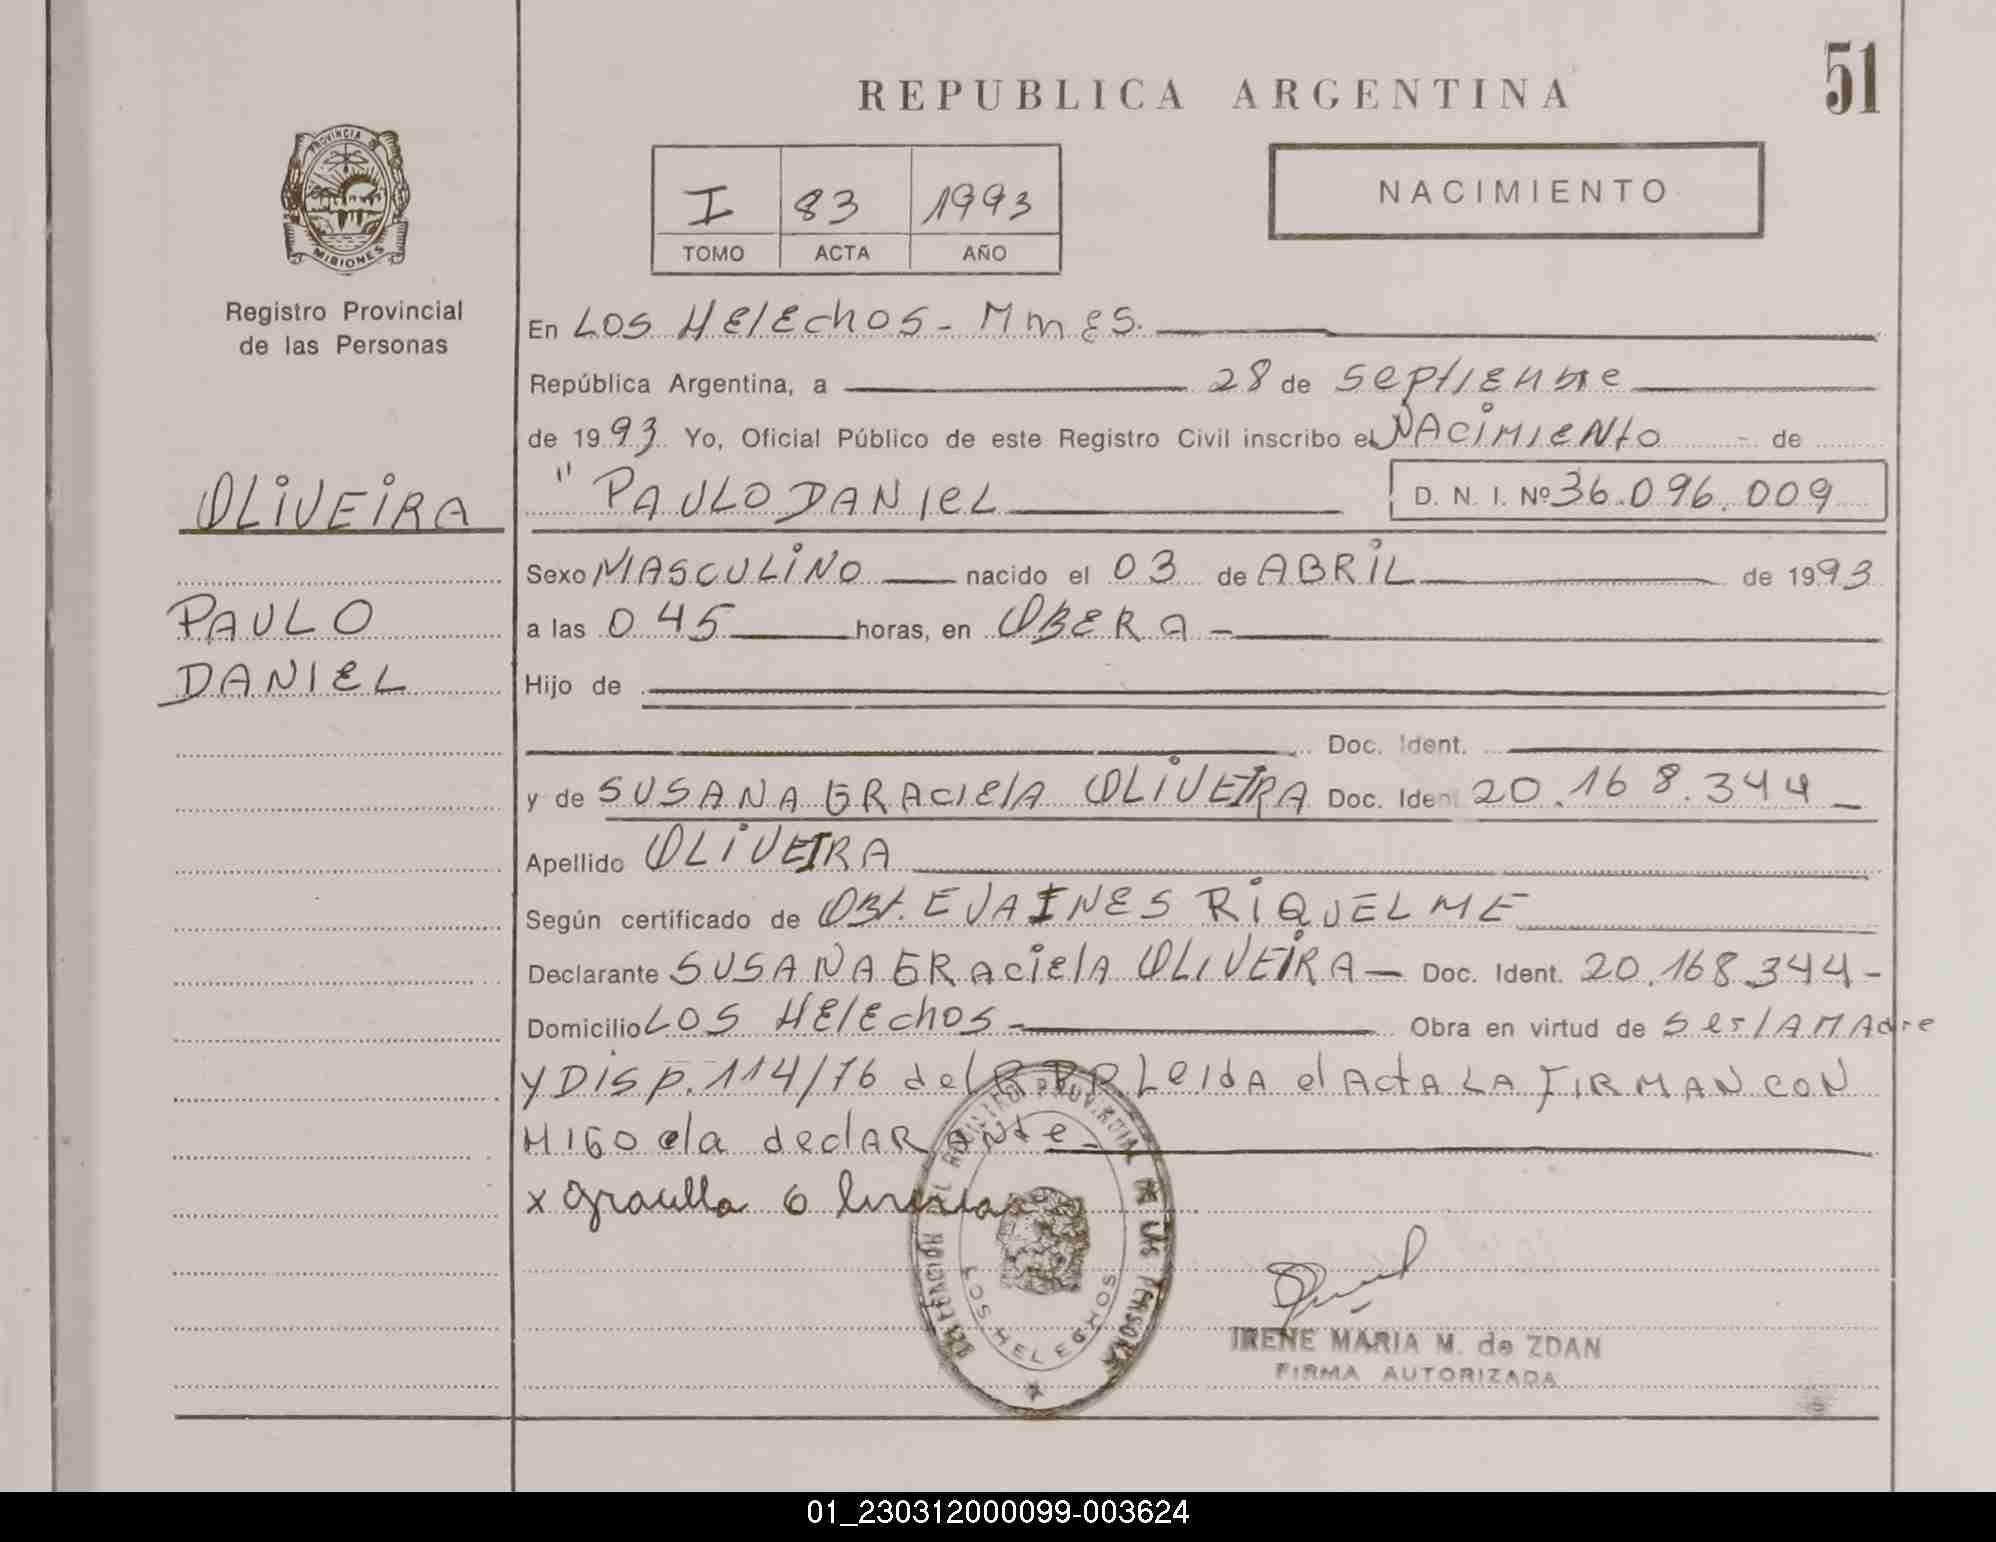 51
REPUBLICA ARGENTINA
PROVINCIA
MISIONES
Registro Provincial
de las Personas
I 83 1993
TOMO ACTA AÑO
NACIMIENTO
En LOS HElEchOS - Mnes.
República Argentina, a 28 de septiembre
de 1993 Yo, Oficial Público de este Registro Civil inscribo el NACiMIeNto - de
OLIVEIRA
PAULO
DANIEL
" PAULO DANIEL D. N. I. Nº 36.096.009
Sexo MASCULINO nacido el 03 de ABRIL de 1993
a las 0 45 horas, en OBERA -
Hijo de
Doc. Ident.
y de SUSANA GRACIElA OLIVEIRA Doc. Ident 20.168.344 -
Apellido OLIVEIRA
Según certificado de Obt. EVA INES RIQUELME
Declarante SUSANA GRACIElA OLIVEIRA - Doc. Ident. 20.168.344 -
Domicilio LOS HElEchOS - Obra en virtud de ser lA MAdre
y Disp. 114/76 del R.P.P. LeIdA el ActA LA FIRMAN CON
MIGO la declARAnte -
x Graciela
DELEGACION DEL REGISTRO PROVINCIAL DE LAS PERSONAS
LOS HELECHOS
IRENE MARIA M. de ZDAN
FIRMA AUTORIZADA
01_230312000099-003624